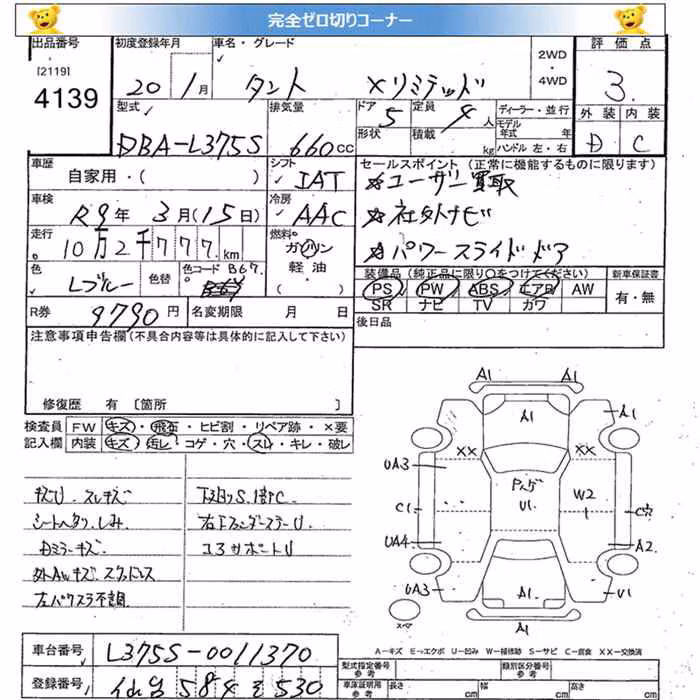 完全ゼロ切りコーナー
出品番号 初度登録年月 車名・グレード 2WD・4WD 評価点
[2119] 4139 20年1月 タント Xリミテッド 3.
型式 排気量 ドア 定員 ディーラー・並行 外装 内装
DBA-L375S 660cc 5 4人 モデル年式 年 D C
形状 積載 kg ハンドル 左・右
車歴 シフト セールスポイント(正常に機能するものに限ります)
自家用・( ) IAT ☆ユーザー買取
車検 冷房
R9年3月(15日) AAC ☆社外ナビ
走行 燃料
10万2千777km ガソリン ☆パワースライドドア
軽油
色 色替 色コード B67. 装備品(純正品に限り○をつけてください) 新車保証書
Lブルー PS PW ABS エアB AW 有・無
SR ナビ TV カワ
R券 9790円 名変期限 月 日 後日品
注意事項申告欄(不具合内容等は具体的に記入して下さい)
修復歴 有 [箇所 ]
検査員 FW キズ・飛石・ヒビ割・リペア跡・×要
記入欄 内装 キズ・汚レ・コゲ・穴・スレ・キレ・破レ
キズU スレキズ
シートヘタリ、しみ
Dミラーキズ
外AWキズ スタッドレス
左パワスラ不調
コアサポートU
A1
A1
A1
A1
XX XX
UA3
Pんゲ U1
W2
C1
UA4
A2
UA3
U1
A1
A1
A-キズ E-エクボ U-凹み W-補修跡 S-サビ C-腐食 XX-交換済
車台番号 L375S-0011370
型式指定番号 参考 類別区分番号 参考
登録番号 仙台 584 そ 530
車庫証明用 参考 長さ cm 幅 cm 高さ cm